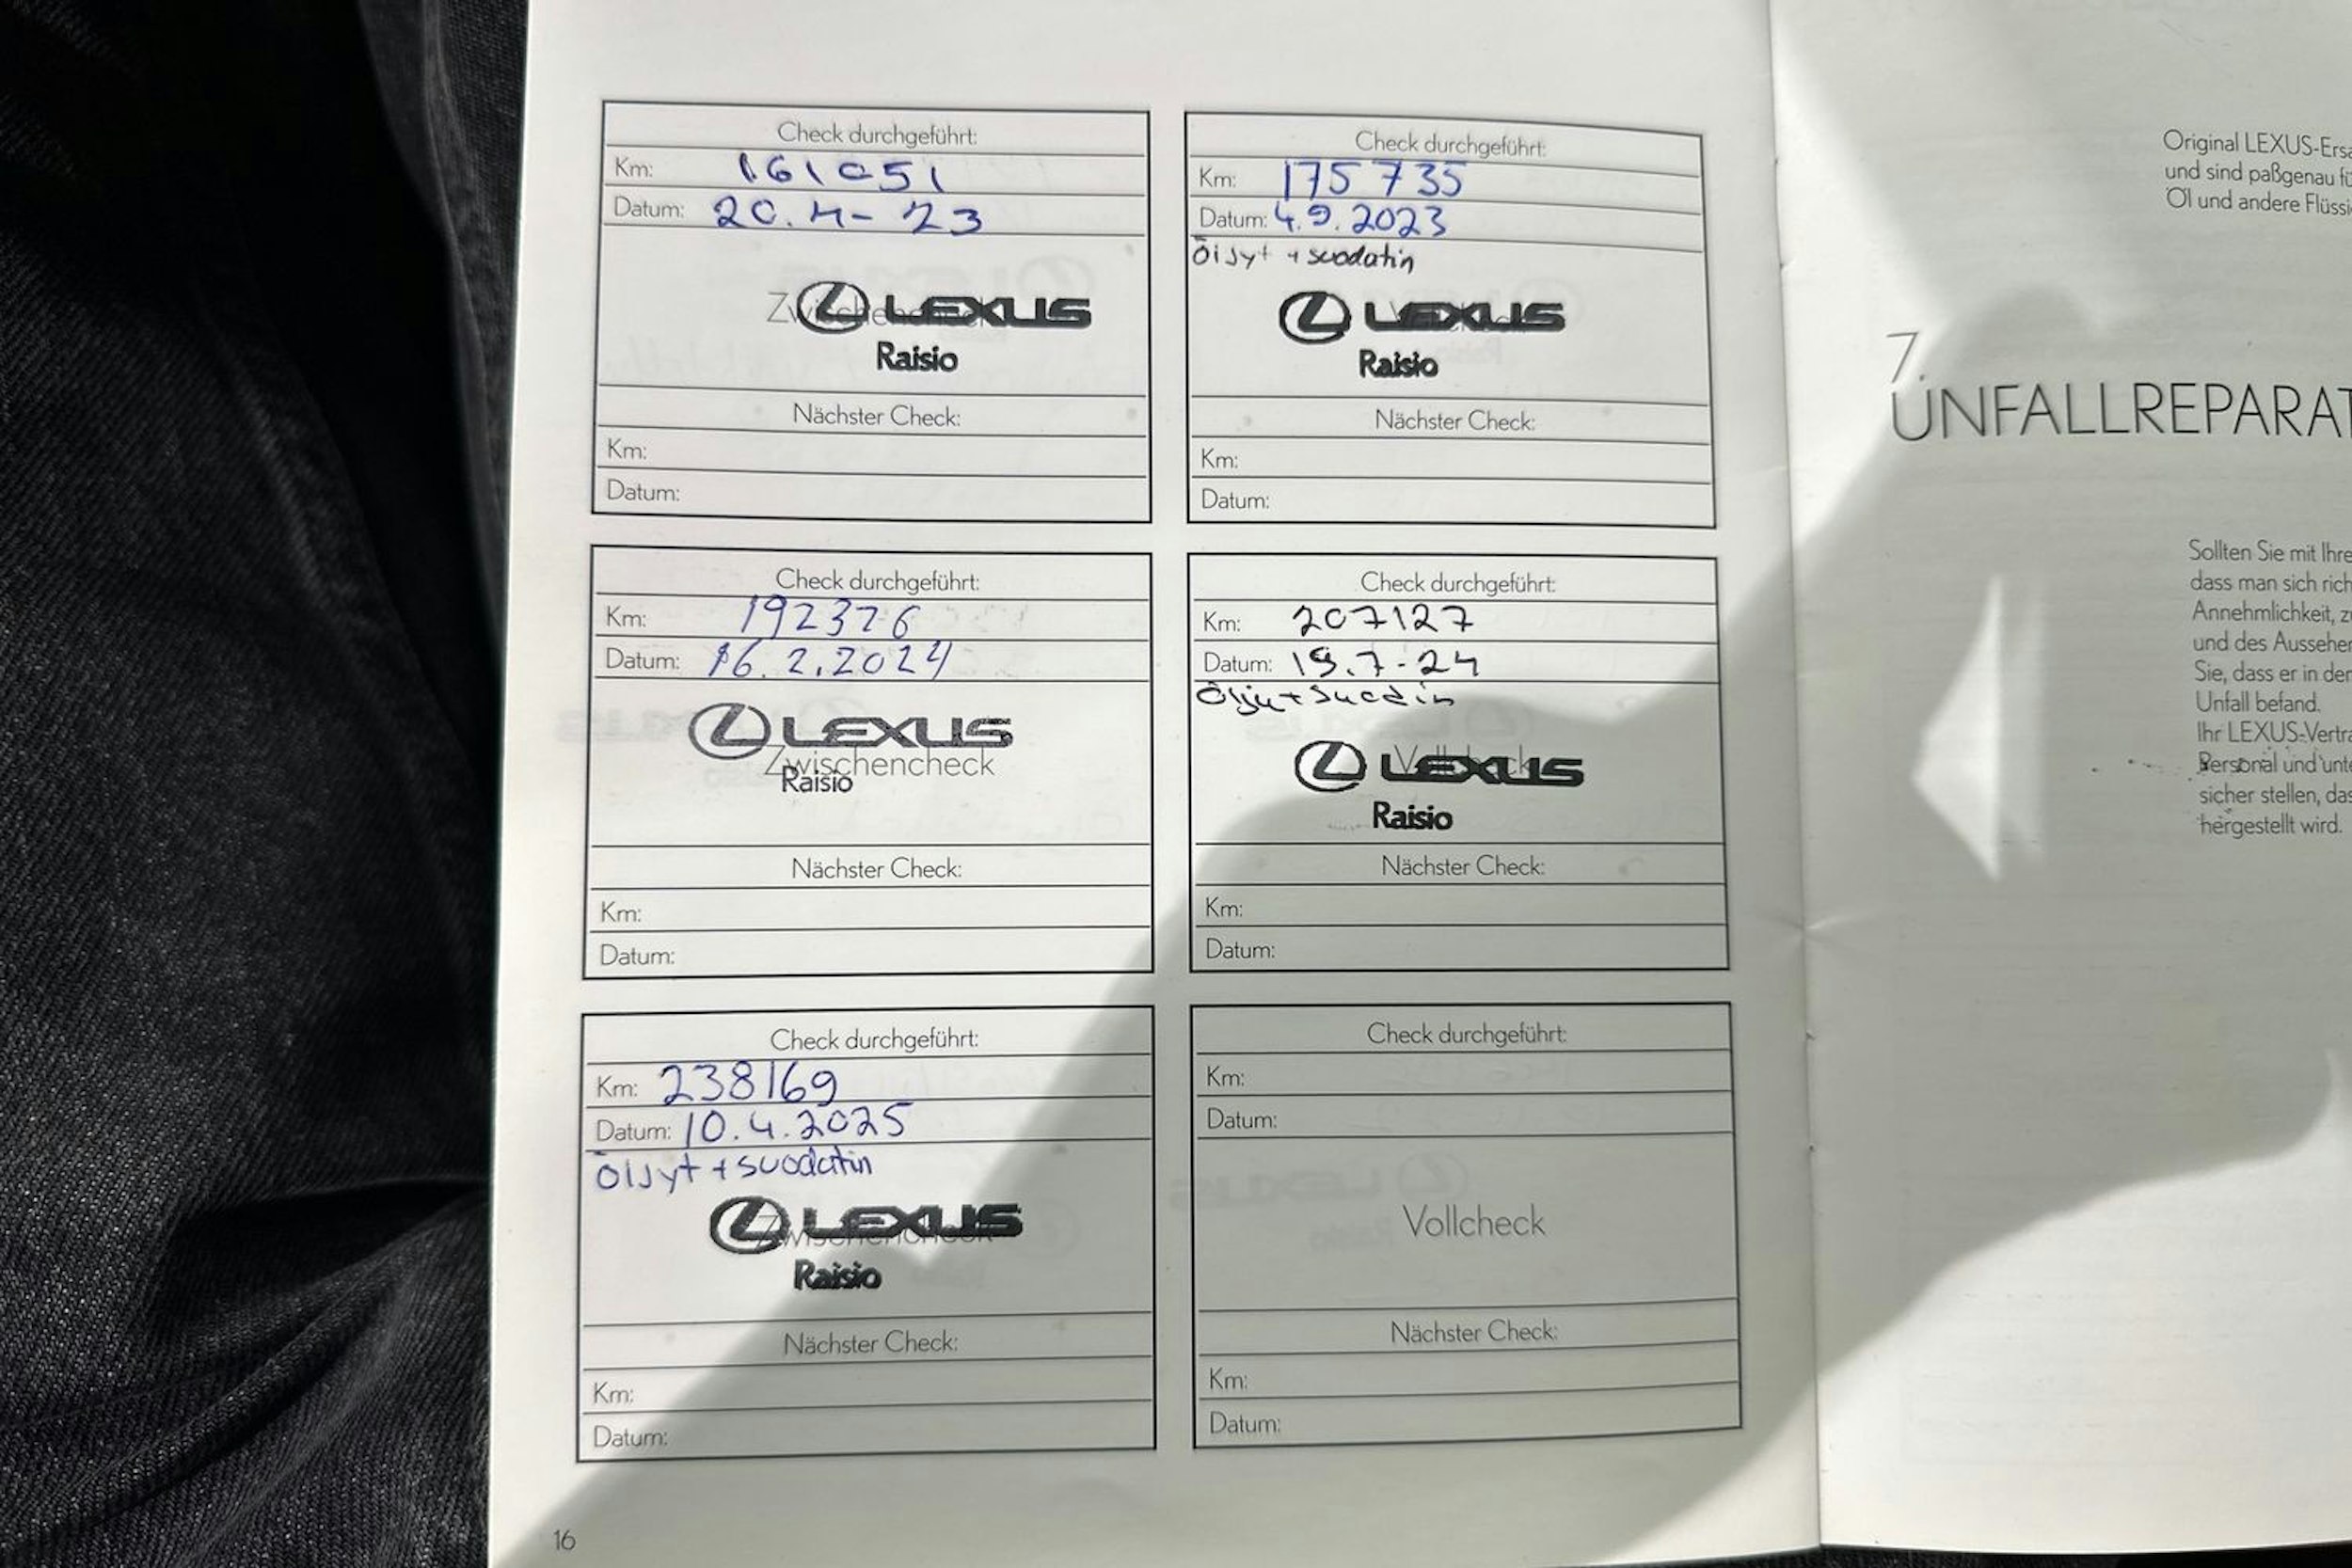 Check durchgeführt:
Km: 161051
Datum: 20.4-23
Zwischencheck
LEXUS
Raisio
Nächster Check:
Km:
Datum:
Check durchgeführt:
Km: 175 735
Datum: 4.9.2023
Öljyt + suodatin
LEXUS
Raisio
Nächster Check:
Km:
Datum:
Check durchgeführt:
Km: 192376
Datum: 16.2.2024
LEXUS
Zwischencheck
Raisio
Nächster Check:
Km:
Datum:
Check durchgeführt:
Km: 207127
Datum: 19.7-24
Vollcheck
LEXUS
Raisio
Nächster Check:
Km:
Datum:
Check durchgeführt:
Km: 238169
Datum: 10.4.2025
Öljyt + suodatin
LEXUS
Zwischencheck
Raisio
Nächster Check:
Km:
Datum:
Check durchgeführt:
Km:
Datum:
Vollcheck
Nächster Check:
Km:
Datum:
16
Original LEXUS-Ersa
und sind paßgenau fü
Öl und andere Flüssi
7.
UNFALLREPARAT
Sollten Sie mit Ihre
dass man sich rich
Annehmlichkeit, zu
und des Aussehen
Sie, dass er in der
Unfall befand.
Ihr LEXUS-Vertra
Personal und unte
sicher stellen, das
hergestellt wird.